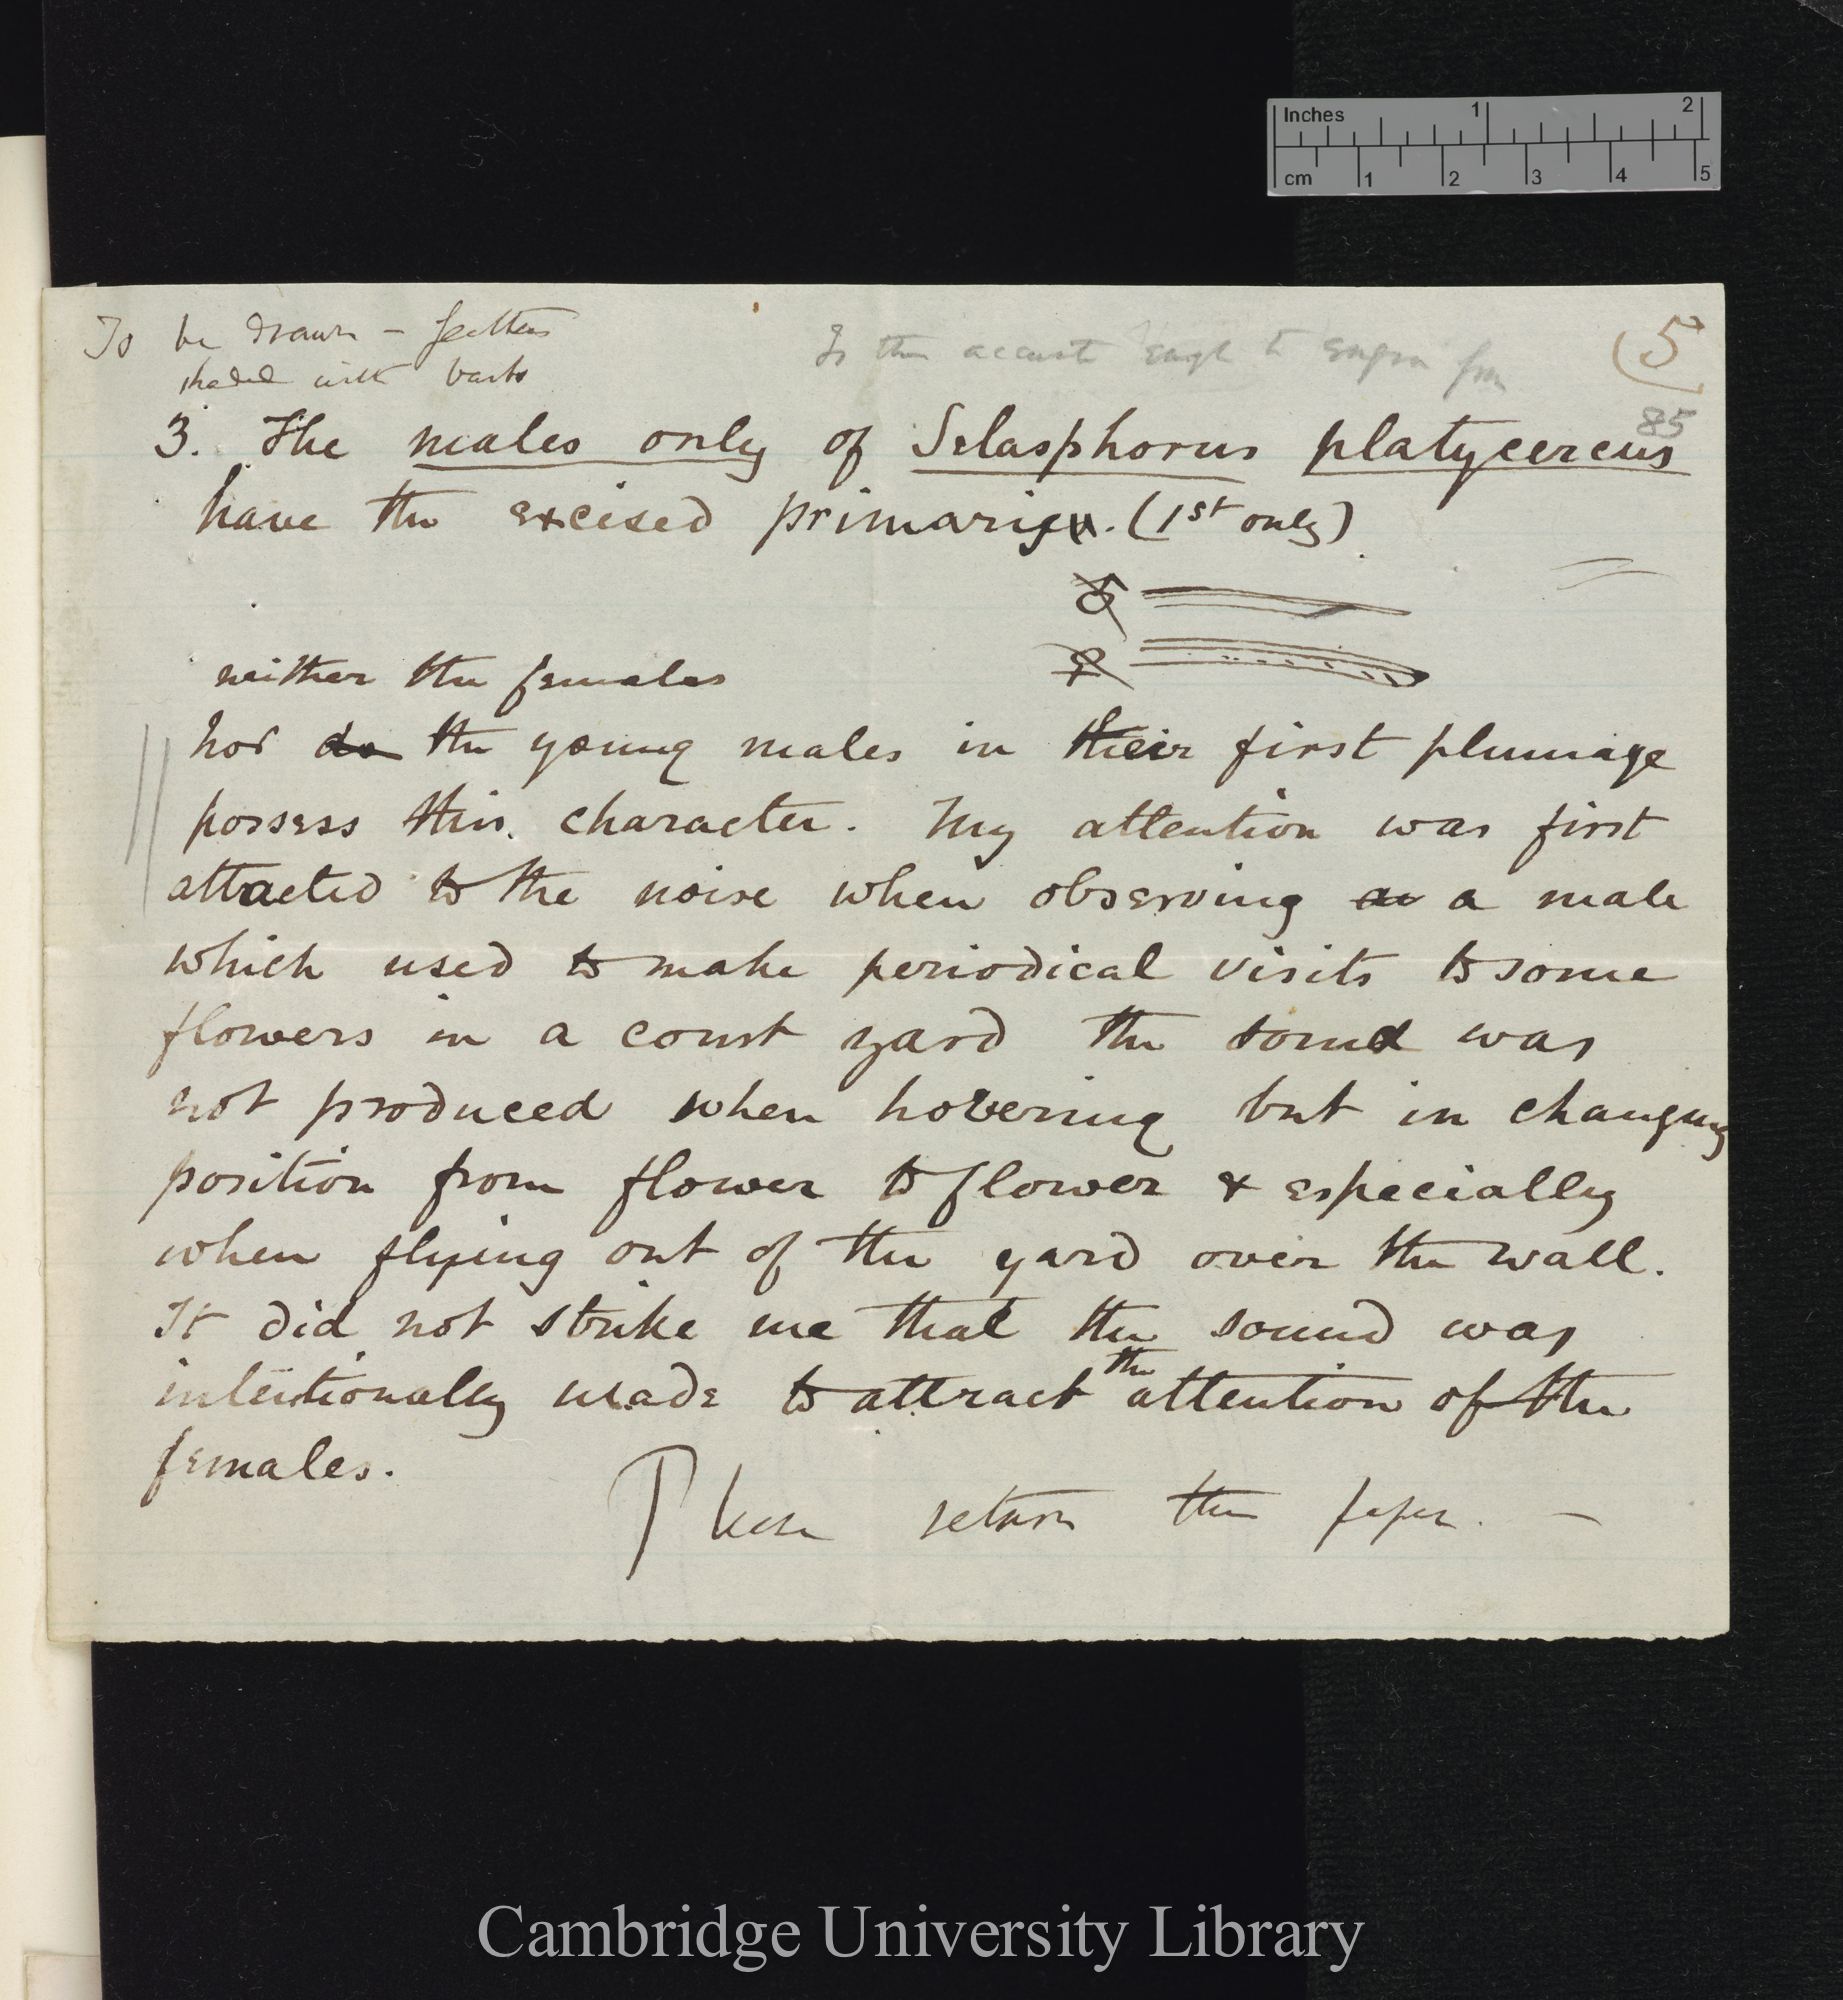 Inches 1 2
cm 1 2 3 4 5
To be drawn – feathers
shaded with barbs
Is this accurate enough to engrave from
(5
85
3. The males only of Selasphorus platycercus
have the excised primaries. (1st only)
♂
♀
neither the females
nor do the young males in their first plumage
possess this character. My attention was first
attracted to the noise when observing an a male
which used to make periodical visits to some
flowers in a court yard the sound was
not produced when hovering but in changing
position from flower to flower & especially
when flying out of the yard over the wall.
It did not strike me that the sound was
intentionally made to attract the attention of the
females.
Please return this paper. –
Cambridge University Library